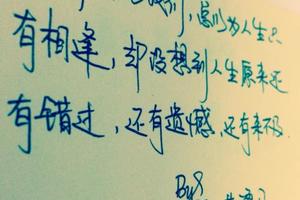 别，总以为人生只
有相逢，却没想到人生原来还
有错过，还有遗憾，还有来不及
By